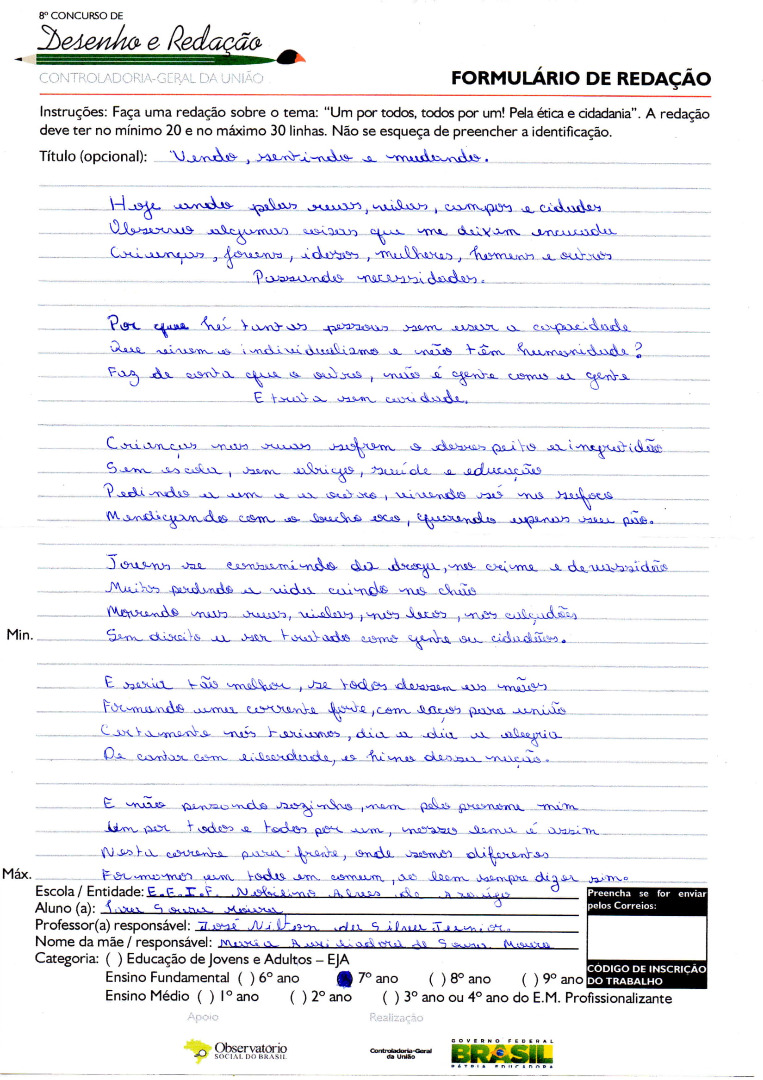 8º CONCURSO DE
Desenho e Redação
CONTROLADORIA-GERAL DA UNIÃO
FORMULÁRIO DE REDAÇÃO
Instruções: Faça uma redação sobre o tema: “Um por todos, todos por um! Pela ética e cidadania”. A redação
deve ter no mínimo 20 e no máximo 30 linhas. Não se esqueça de preencher a identificação.
Título (opcional): Vendo, sentindo e mudando.
Hoje ando pelas ruas, vilas, campos e cidades
Observo algumas coisas que me deixam encucada
Crianças, jovens, idosos, mulheres, homens e outros
Passando necessidades.
Por que há tantas pessoas sem usar a capacidade
Que vivem o individualismo e não têm humanidade?
Faz de conta que o outro, não é gente como a gente
E trata sem caridade.
Crianças nas ruas sofrem o desrespeito a ingratidão
Sem escola, sem abrigo, saúde e educação
Pedindo a um e a outro, vivendo só no sufoco
Mendigando com o bucho oco, querendo apenas seu pão.
Jovens se consumindo da droga, no crime e devassidão
Muitos perdendo a vida caindo no chão
Morrendo nas ruas, vielas, nos becos, nos calçadões
Min. Sem direito a ser tratado como gente ou cidadãos.
E seria tão melhor, se todos dessem as mãos
Formando uma corrente forte, com laços para união
Certamente nós teríamos, dia a dia a alegria
De cantar com liberdade, o hino dessa nação.
E não pensando sozinho, nem pelo pronome mim
Um por todos e todos por um, nosso lema é assim
Nesta corrente para frente, onde somos diferentes
Máx. Formamos um todo em comum, ao bem sempre dizer sim.
Escola / Entidade: E.E.I.F. Nobilino Alves de Araújo
Aluno (a): Sousa Moura
Professor(a) responsável: José Nilton da Silva Junior.
Nome da mãe / responsável: Maria Auxiliadora de Sousa Moura
Categoria: ( ) Educação de Jovens e Adultos – EJA
Ensino Fundamental ( ) 6º ano ( ) 7º ano ( ) 8º ano ( ) 9º ano
Ensino Médio ( ) 1º ano ( ) 2º ano ( ) 3º ano ou 4º ano do E.M. Profissionalizante
Preencha se for enviar
pelos Correios:
CÓDIGO DE INSCRIÇÃO
DO TRABALHO
Apoio
Realização
Observatório
SOCIAL DO BRASIL
Controladoria-Geral
da União
GOVERNO FEDERAL
BRASIL
PÁTRIA EDUCADORA